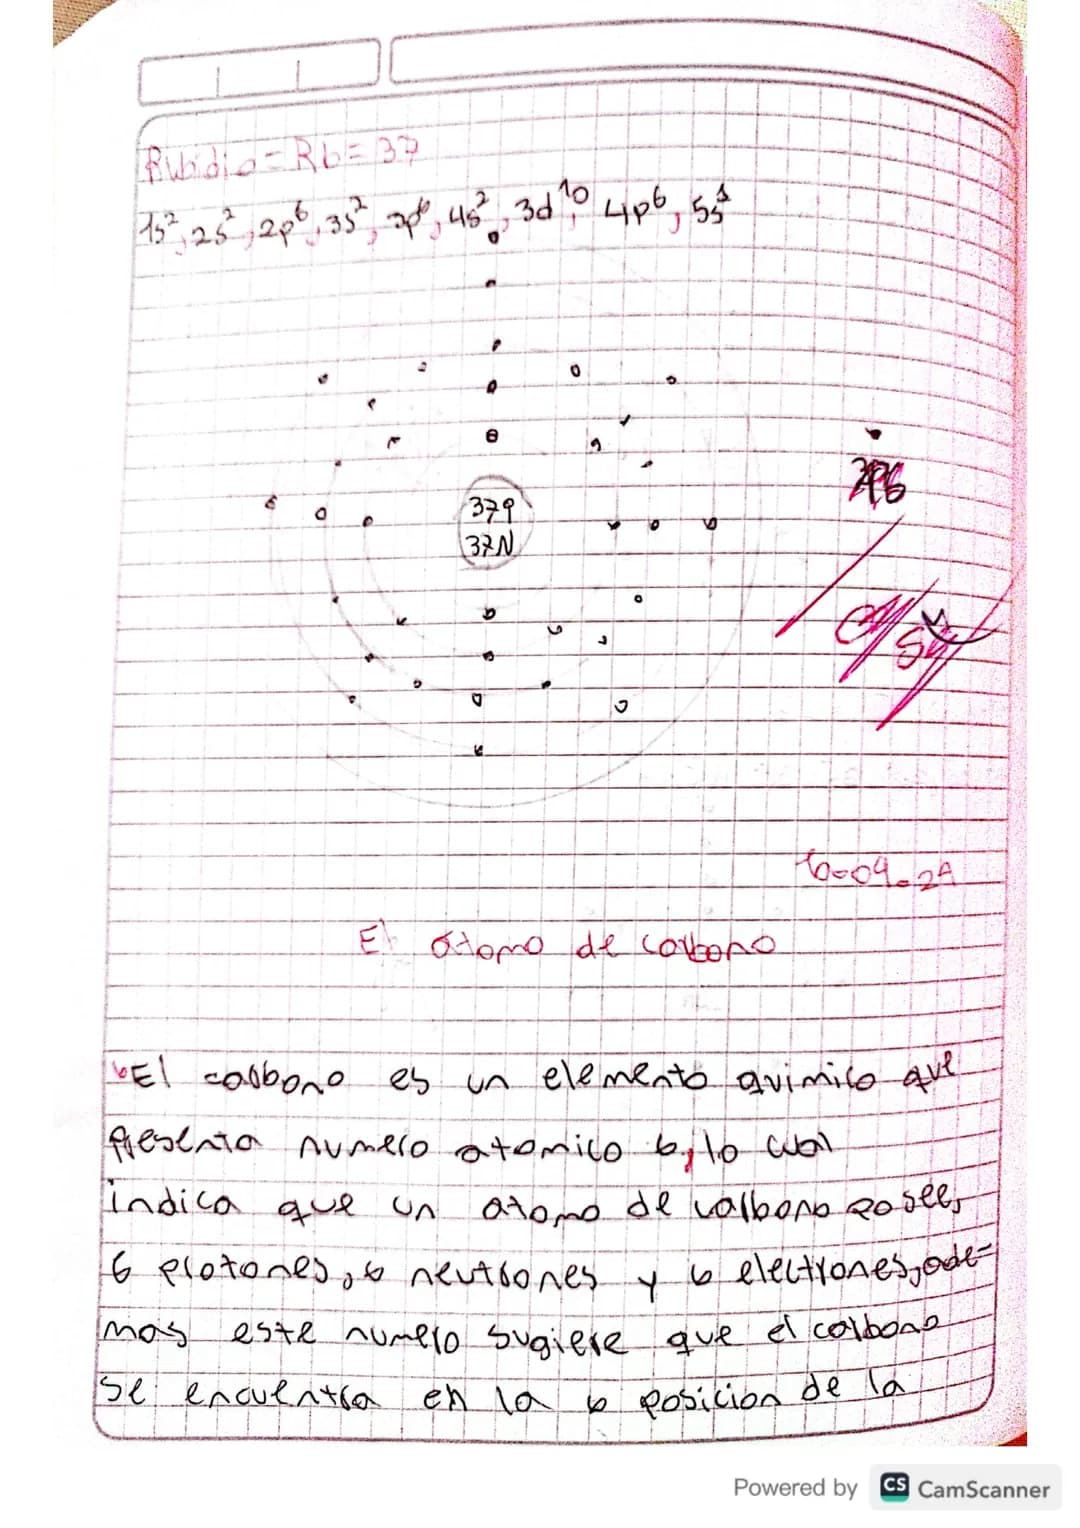 Rubidio = Rb = 37
1s², 2s², 2p⁶, 3s², 3p⁶, 4s², 3d¹⁰, 4p⁶, 5s¹
37p
37N
16-09-24
El átomo de carbono
El carbono es un elemento quimico que
presenta numero atomico 6, lo cual
indica que un atomo de carbono posee,
6 protones, 6 neutrones y 6 electrones, ade-
mas este numero sugiere que el carbono
se encuentra en la 6 posicion de la
Powered by CS CamScanner